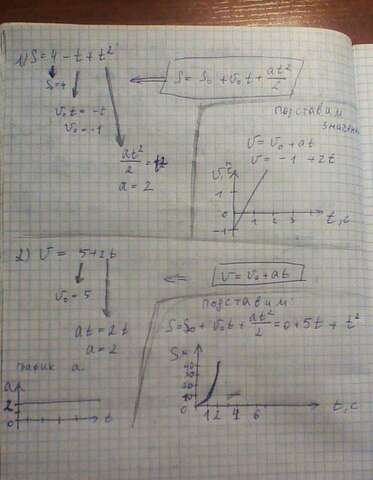 1) S = 4 - t + t²
S = S₀ + v₀t + at²/2
v₀t = -t
v₀ = -1
at²/2 = t²
a = 2
подставим
значени
v = v₀ + at
v = -1 + 2t
1
0
-1
1 2 3 t, c
2) v = 5 + 2t
v = v₀ + at
v₀ = 5
at = 2t
a = 2
подставим:
S = S₀ + v₀t + at²/2 = 0 + 5t + t²
график a
a
2
0
t
S
40
30
20
10
0
1 2 4 6 t, c